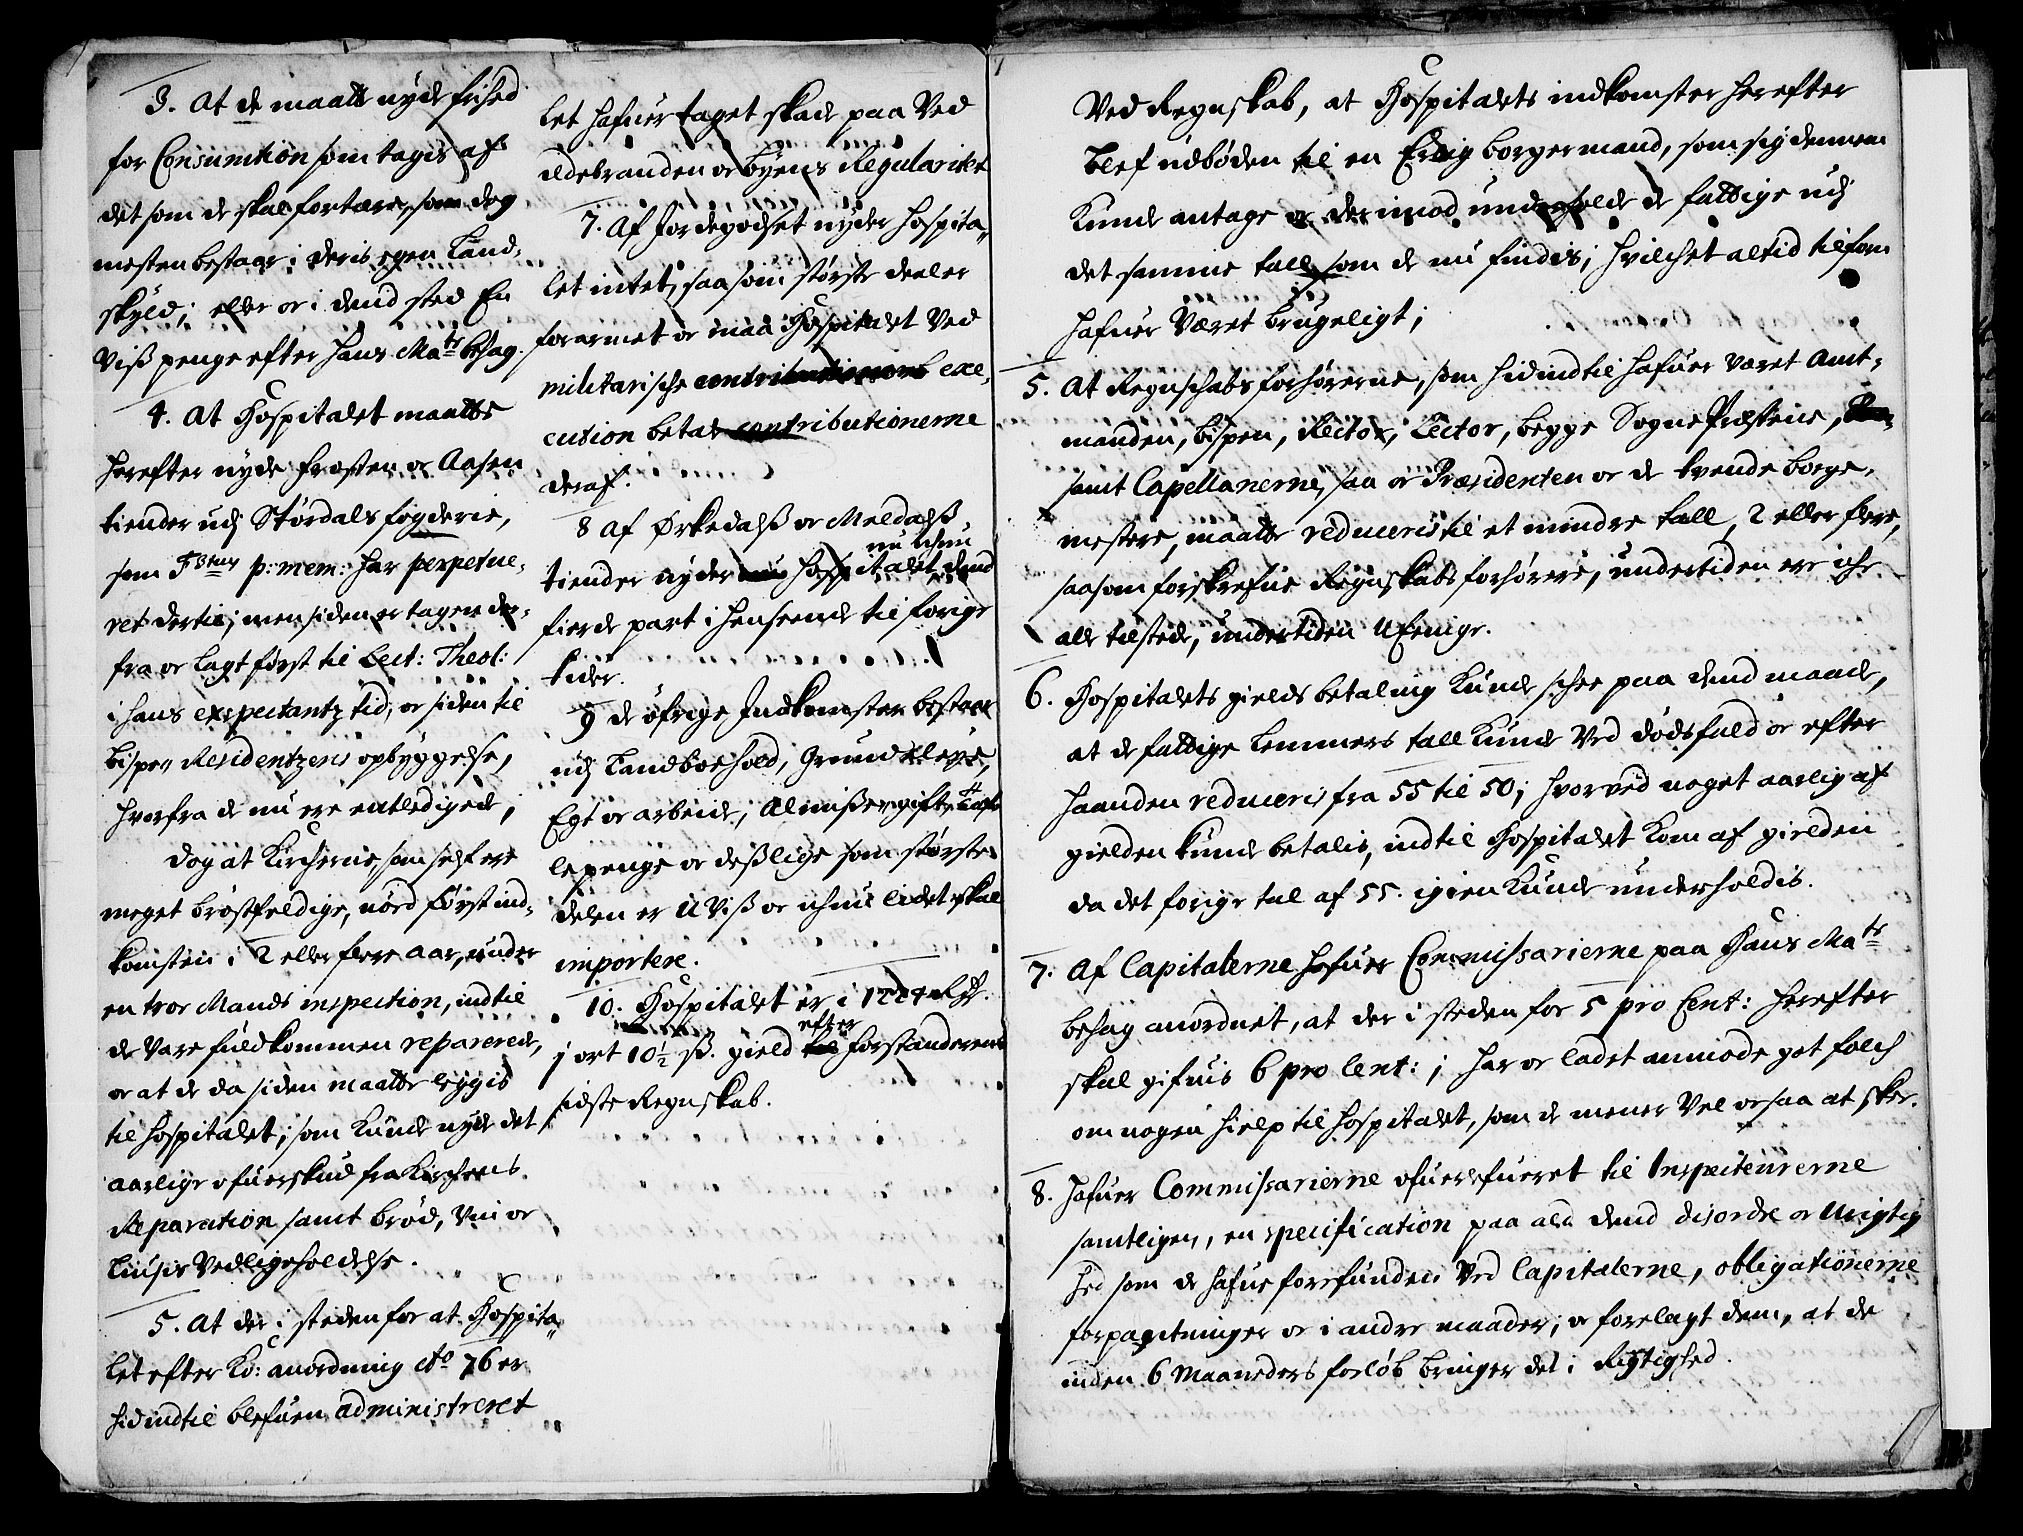 3. At de maatte nyde frihed
for Consumtion som tages af
det som de skal fortære, som dog
mesten bestaar i deris egen Land-
skyld; eller oc i dend sted En
Viss penge efter Hans Ma:ts behag.
4. At Hospitalet maatte
herefter nyde Frosten oc Aasen
tiender udj Størdals fogderie,
som p: mem: har perpetue-
ret dertil; men siden er tagen der-
fra oc lagt først til Lect: Theol:
i hans exspectantz tid, oc siden til
bispens Residentzens opbyggelse,
hvorfra de nu ere entledigede;
dog at Kircherne, som self ere
meget brøstfeldige, nød først ind-
komsten i 2 eller flere aar, under
en troe Mands inspection, indtil
de vare fuldkommen reparerede,
oc at de da siden maatte leggis
til Hospitalet; som kunde nyde det
aarlige ofuerskud fra Kirchens
Reparation samt brød, Vin oc
Liusis Vedligeholdelse.
5. At der i steden for at Hospita-
let efter Ko: anordning Ao 76 er
hidindtil blefuen administreret
let hafuer taget skade paa Ved
ildebranden oc byens Regularitet
7. Af Jordegodset nyder Hospita-
let intet, saasom største deelen
forarmet oc maa Hospitalet Ved
militarische contributioners exe-
cution betale contributionerne
deraf.
8 Af Ørkedalss oc Meldalss
nu ichun
tiender nyder Hospitalet dend
fierde part i henseende til forige
tider.
9 de øfrige Indkomster bestaar
udj Landbohold, Grundeleye,
Egt oc arbeide, Almisse gifte, Tafle
lepenge oc desslige som største
delen er Uviss oc ichun lidet skal
importere.
10. Hospitalet er i 1224 Rdr.
efter
j ort 10½ sk. gield forstanderens
sidste Regnskab.
Ved Regnskab, at Hospitalets indkomster herefter
blef udbøden til en Erlig borgermand, som sig dennem
kunde antage oc der imod underholde de fattige udj
det samme tall som de nu findis; hvilchet altid tilforn
hafuer Været brugeligt;
5. At Regnschabs forhørerne, som hidindtil hafuer været Amt-
manden, bispen, Rector, Lector, begge Sogne Præsterne,
samt Capellanerne, saa oc Præsidenten oc de tvende borge-
mestere, maatte reduceris til et mindre tall, 2 eller flere,
saasom forskrefne Regnskabs forhørere, undertiden ere iche
alle tilstede, undertiden Ufenige.
6. Hospitalets gields betaling kunde schee paa dend maade,
at de fattige Lemmers tall kunde Ved dødsfald oc efter
haanden reduceris fra 55 til 50; hvorved noget aarlig af
gielden kunde betalis, indtil Hospitalet kom af gielden
da det forige tal af 55. igien kunde underholdis.
7. Af Capitalerne hafuer Commissarierne paa Hans Ma:ts
behag anordnet, at der i steden for 5 pro Cent: herefter
skal gifuis 6 pro Cent:; har oc ladet anmode got folch
om nogen hielp til Hospitalet, som de mener Vel ocsaa at skee.
8. Hafuer Commissarierne ofuerlefueret til Inspecteurerne
samtligen, en specification paa ald dend disordre oc Urigtig
hed som de hafue forefunden Ved Capitalerne, obligationerne
forpagtninger oc i andre maader; oc forelagt dem, at de
inden 6 Maaneders forløb bringer det i Rigtighed.